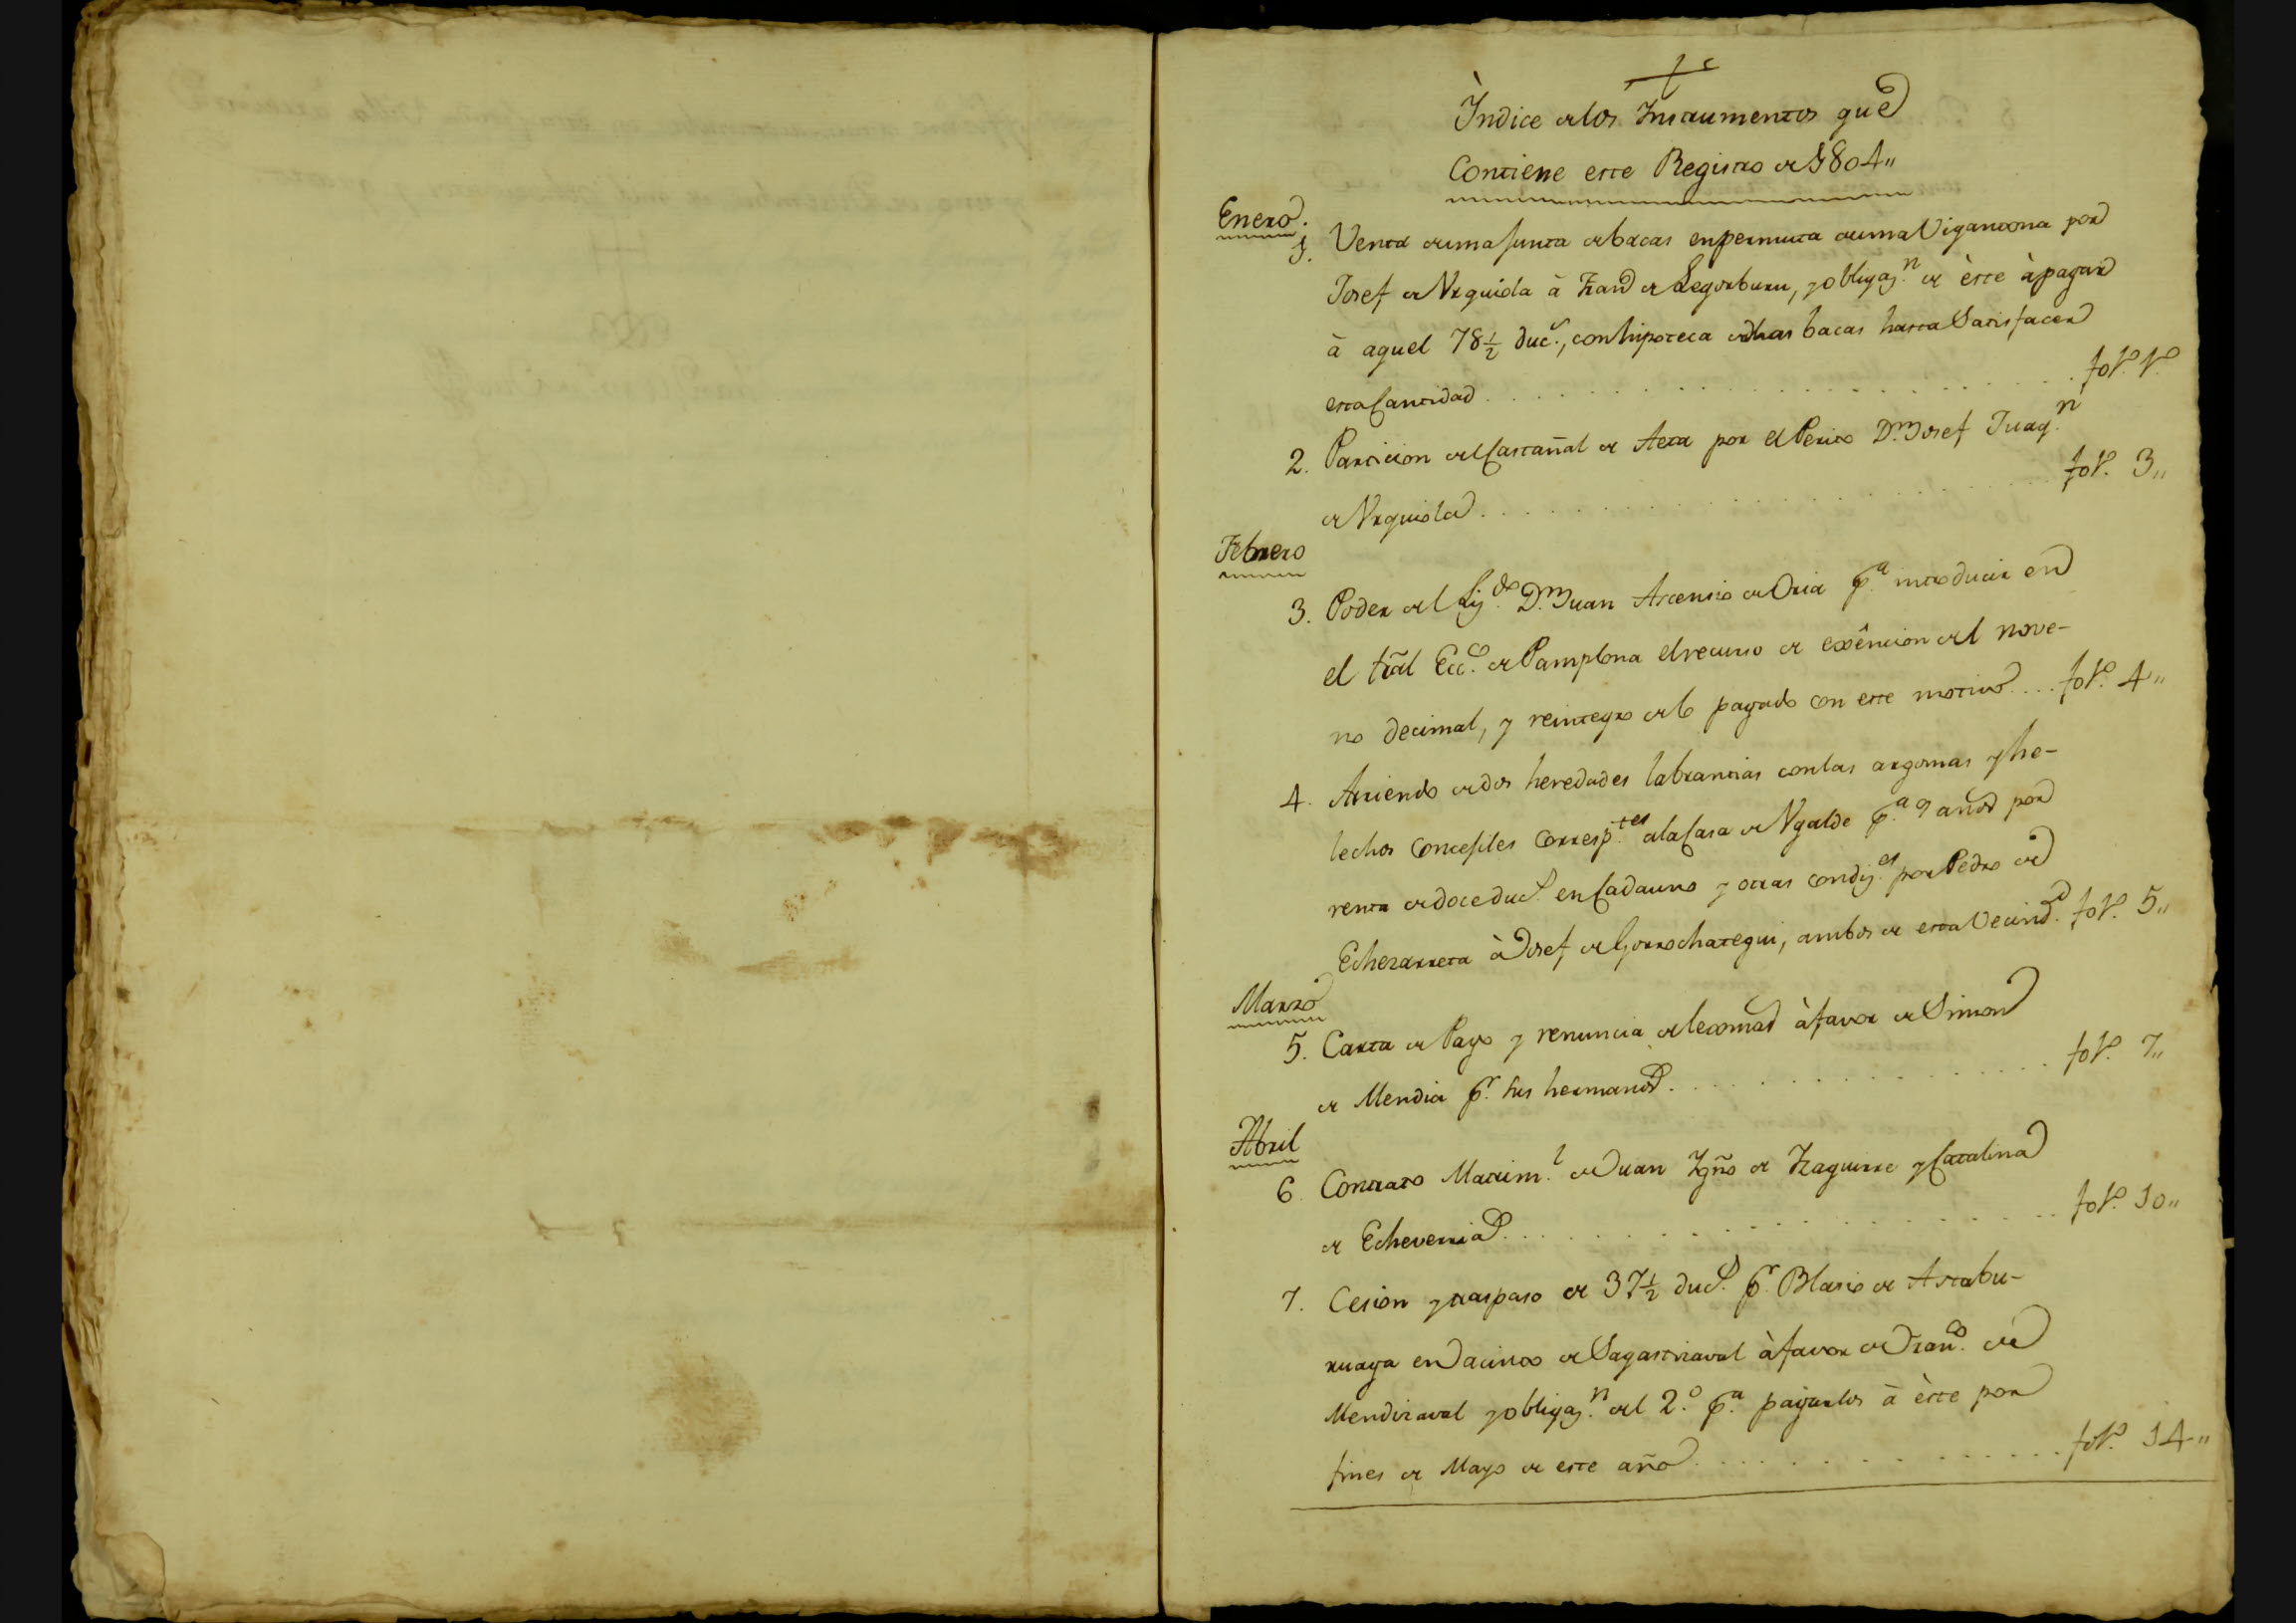 Ìndice de los Instrumentos que
Contiene este Registro de 1804,,
Enero.
1. Venta de una Junta de bacas en permuta de una Vigantona por
Josef de Vrquiola à Fran.co de Legorburu, y obligaz.n de èste à pagar
à aquel 78½ duc.s, con hipoteca de dhas bacas hasta Satisfacer
esta Cantidad . . . . . . . . . . fol.o 1.o
2. Particion del Castañal de Aeta por el Perito D.n Josef Juaq.n
de Vrquiola . . . . . . . . . . fol.o 3,,
Febrero
3. Poder del Liz.do D.n Juan Ascensio de Oria p.a introducir en
el trāl Ecc.co de Pamplona el recurso de exêncion del nove-
no decimal, y reintegro de lo pagado con este motivo . . . fol.o 4,,
4. Arriendo de dos heredades labrantias con las argomas y he-
lechos Concejiles Corresp.tes a la Casa de Vgalde p.a 9 años por
renta de doce duc.s en Cada uno y otras condiz.es por Pedro de
Echezarreta à Josef de Gorrochategui, ambos de esta Vecind.d fol.o 5,,
Marzo
5. Carta de Pago y renuncia de lexitimas à favor de Simon
de Mendia p.r sus hermanos . . . . . . . . . . fol.o 7,,
Abril
6 Contrato Matrim.l de Juan Ygño de Yzaguirre y Catalina
de Echeverria . . . . . . . . . . fol.o 10,,
7. Cesion y traspaso de 37½ duc.s p.r Blasio de Astabu-
ruaga en Jacinto de Sagastizaval à favor de Fran.co de
Mendizaval y obligaz.n del 2.o p.a pagarlos à èste por
fines de Mayo de este año . . . . . . . . . . fol.o 14,,